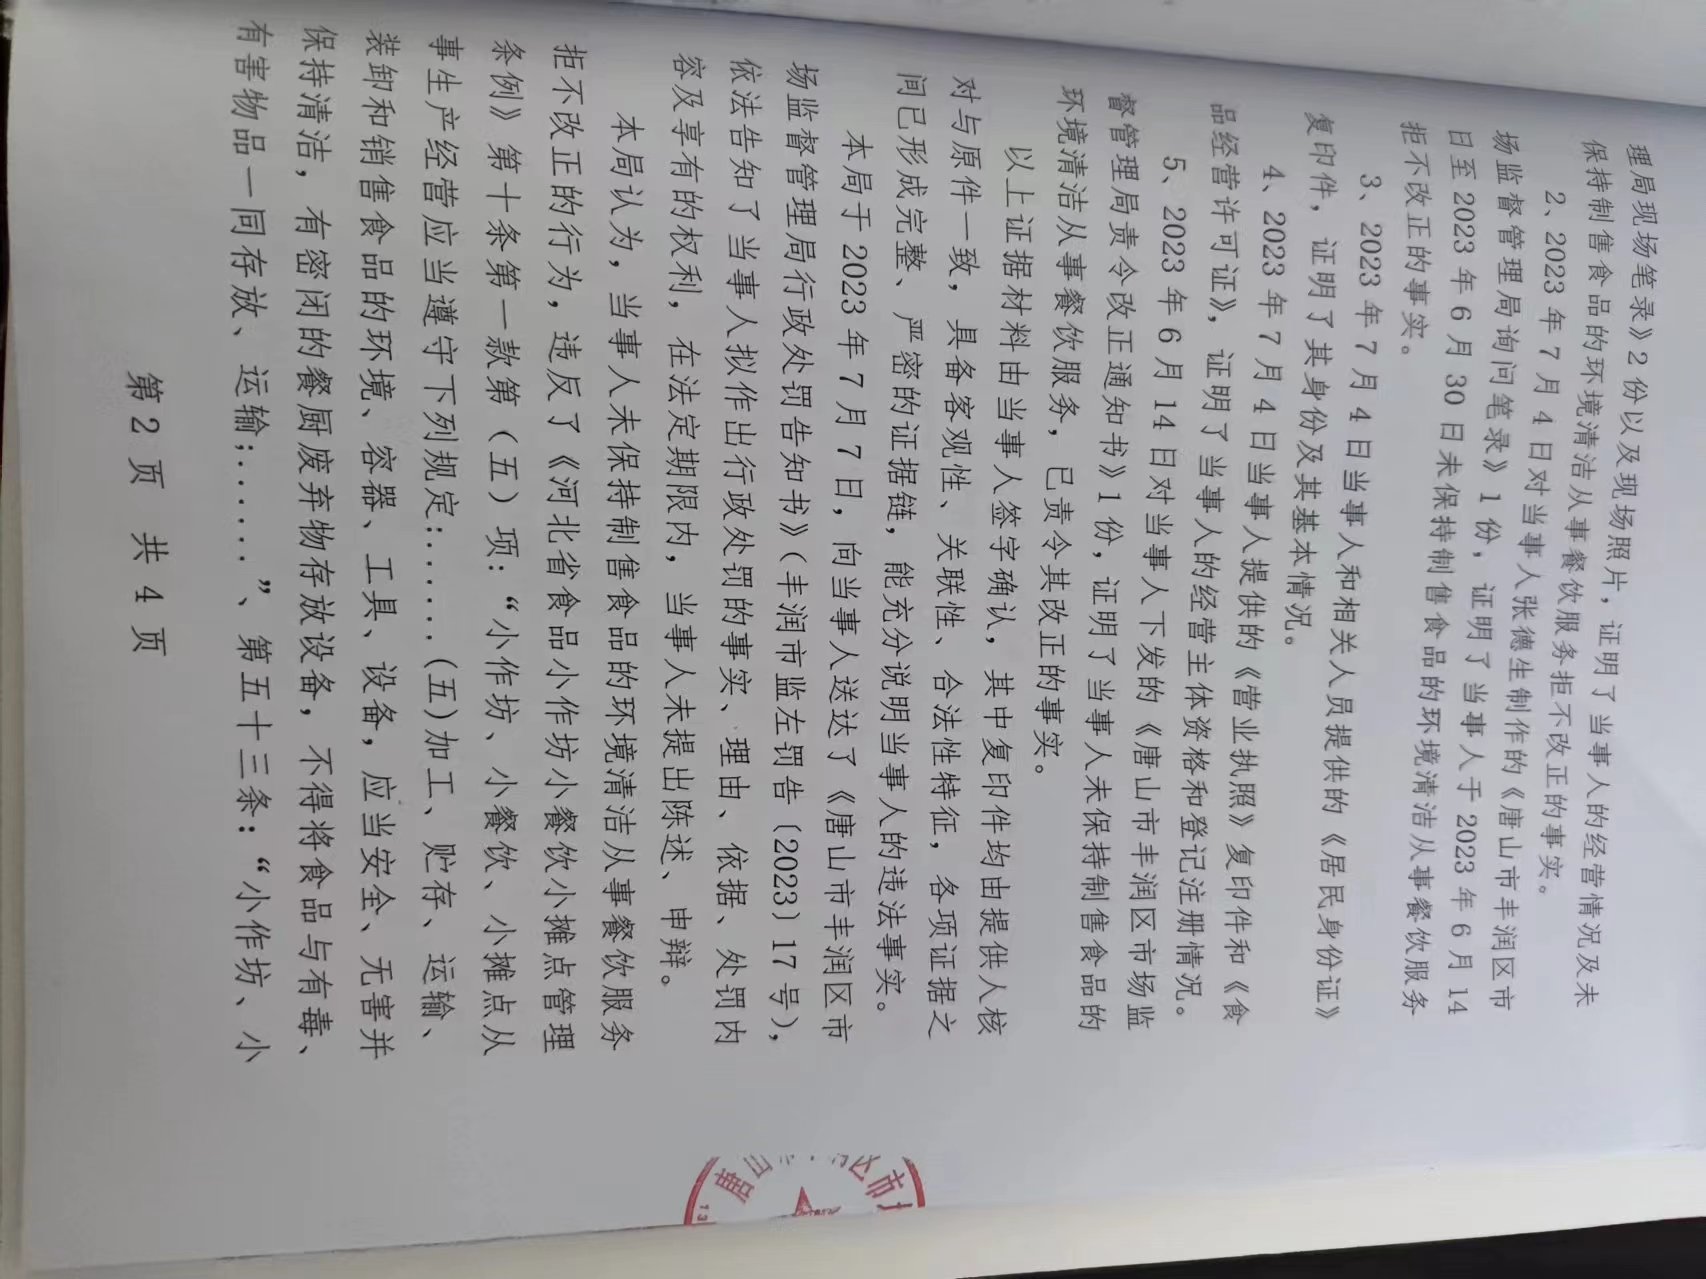 理局现场笔录》2 份以及现场照片，证明了当事人的经营情况及未
保持制售食品的环境清洁从事餐饮服务拒不改正的事实。
2、2023 年 7 月 4 日对当事人张德生制作的《唐山市丰润区市
场监督管理局询问笔录》1 份，证明了当事人于 2023 年 6 月 14
日至 2023 年 6 月 30 日未保持制售食品的环境清洁从事餐饮服务
拒不改正的事实。
3、2023 年 7 月 4 日当事人和相关人员提供的《居民身份证》
复印件，证明了其身份及其基本情况。
4、2023 年 7 月 4 日当事人提供的《营业执照》复印件和《食
品经营许可证》，证明了当事人的经营主体资格和登记注册情况。
5、2023 年 6 月 14 日对当事人下发的《唐山市丰润区市场监
督管理局责令改正通知书》1 份，证明了当事人未保持制售食品的
环境清洁从事餐饮服务，已责令其改正的事实。
以上证据材料由当事人签字确认，其中复印件均由提供人核
对与原件一致，具备客观性、关联性、合法性特征，各项证据之
间已形成完整、严密的证据链，能充分说明当事人的违法事实。
本局于 2023 年 7 月 7 日，向当事人送达了《唐山市丰润区市
场监督管理局行政处罚告知书》（丰润市监左罚告〔2023〕17 号），
依法告知了当事人拟作出行政处罚的事实、理由、依据、处罚内
容及享有的权利，在法定期限内，当事人未提出陈述、申辩。
本局认为，当事人未保持制售食品的环境清洁从事餐饮服务
拒不改正的行为，违反了《河北省食品小作坊小餐饮小摊点管理
条例》第十条第一款第（五）项：“小作坊、小餐饮、小摊点从
事生产经营应当遵守下列规定：......（五）加工、贮存、运输、
装卸和销售食品的环境、容器、工具、设备，应当安全、无害并
保持清洁，有密闭的餐厨废弃物存放设备，不得将食品与有毒、
有害物品一同存放、运输；......”、第五十三条：“小作坊、小
第 2 页 共 4 页
唐山
区市
13